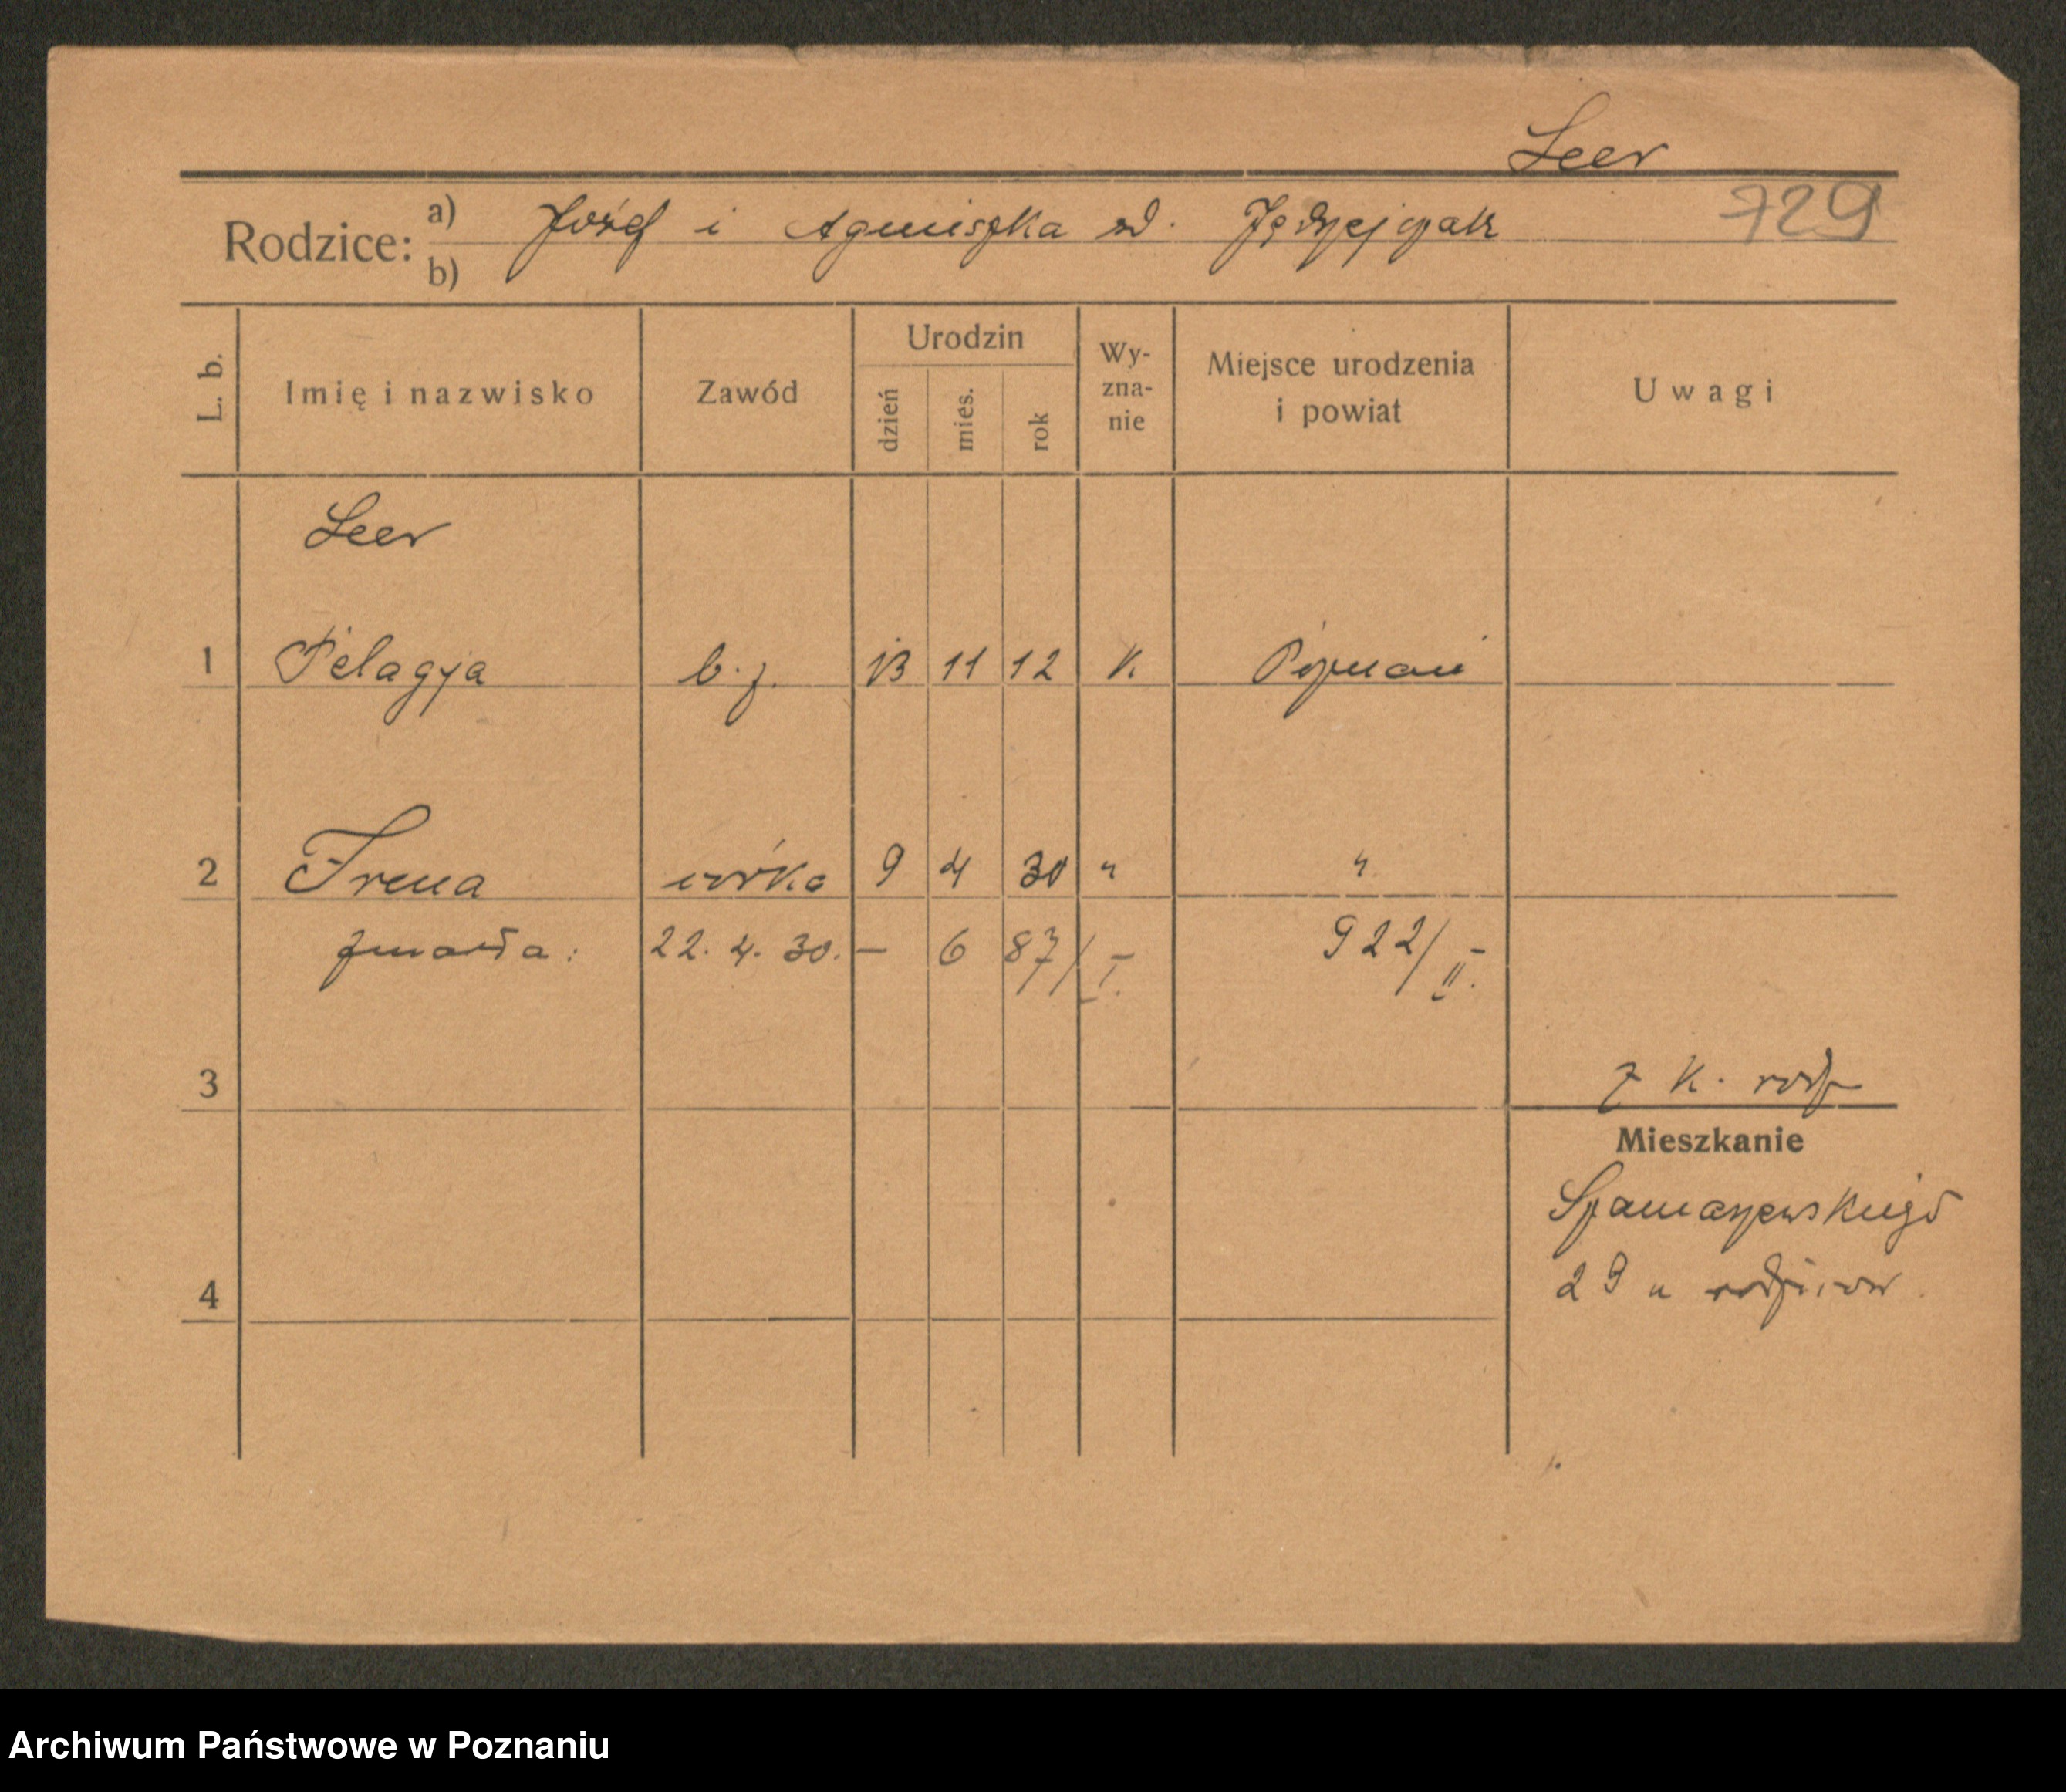 Leer
729
Rodzice: a) Józef i Agnieszka zd. Jędrzejczak
b)
L. b. Imię i nazwisko Zawód Urodzin dzień mies. rok Wyznanie Miejsce urodzenia i powiat Uwagi
Leer
1 Pelagja b. z. 13 11 12 K. Poznań
2 Irena córka 9 4 30 " "
zmarła: 22. 4. 30. — 6 87/I. 922/II.
3 z K. rodz
Mieszkanie
Szamarzewskiego
29 u rodziców
4
Archiwum Państwowe w Poznaniu